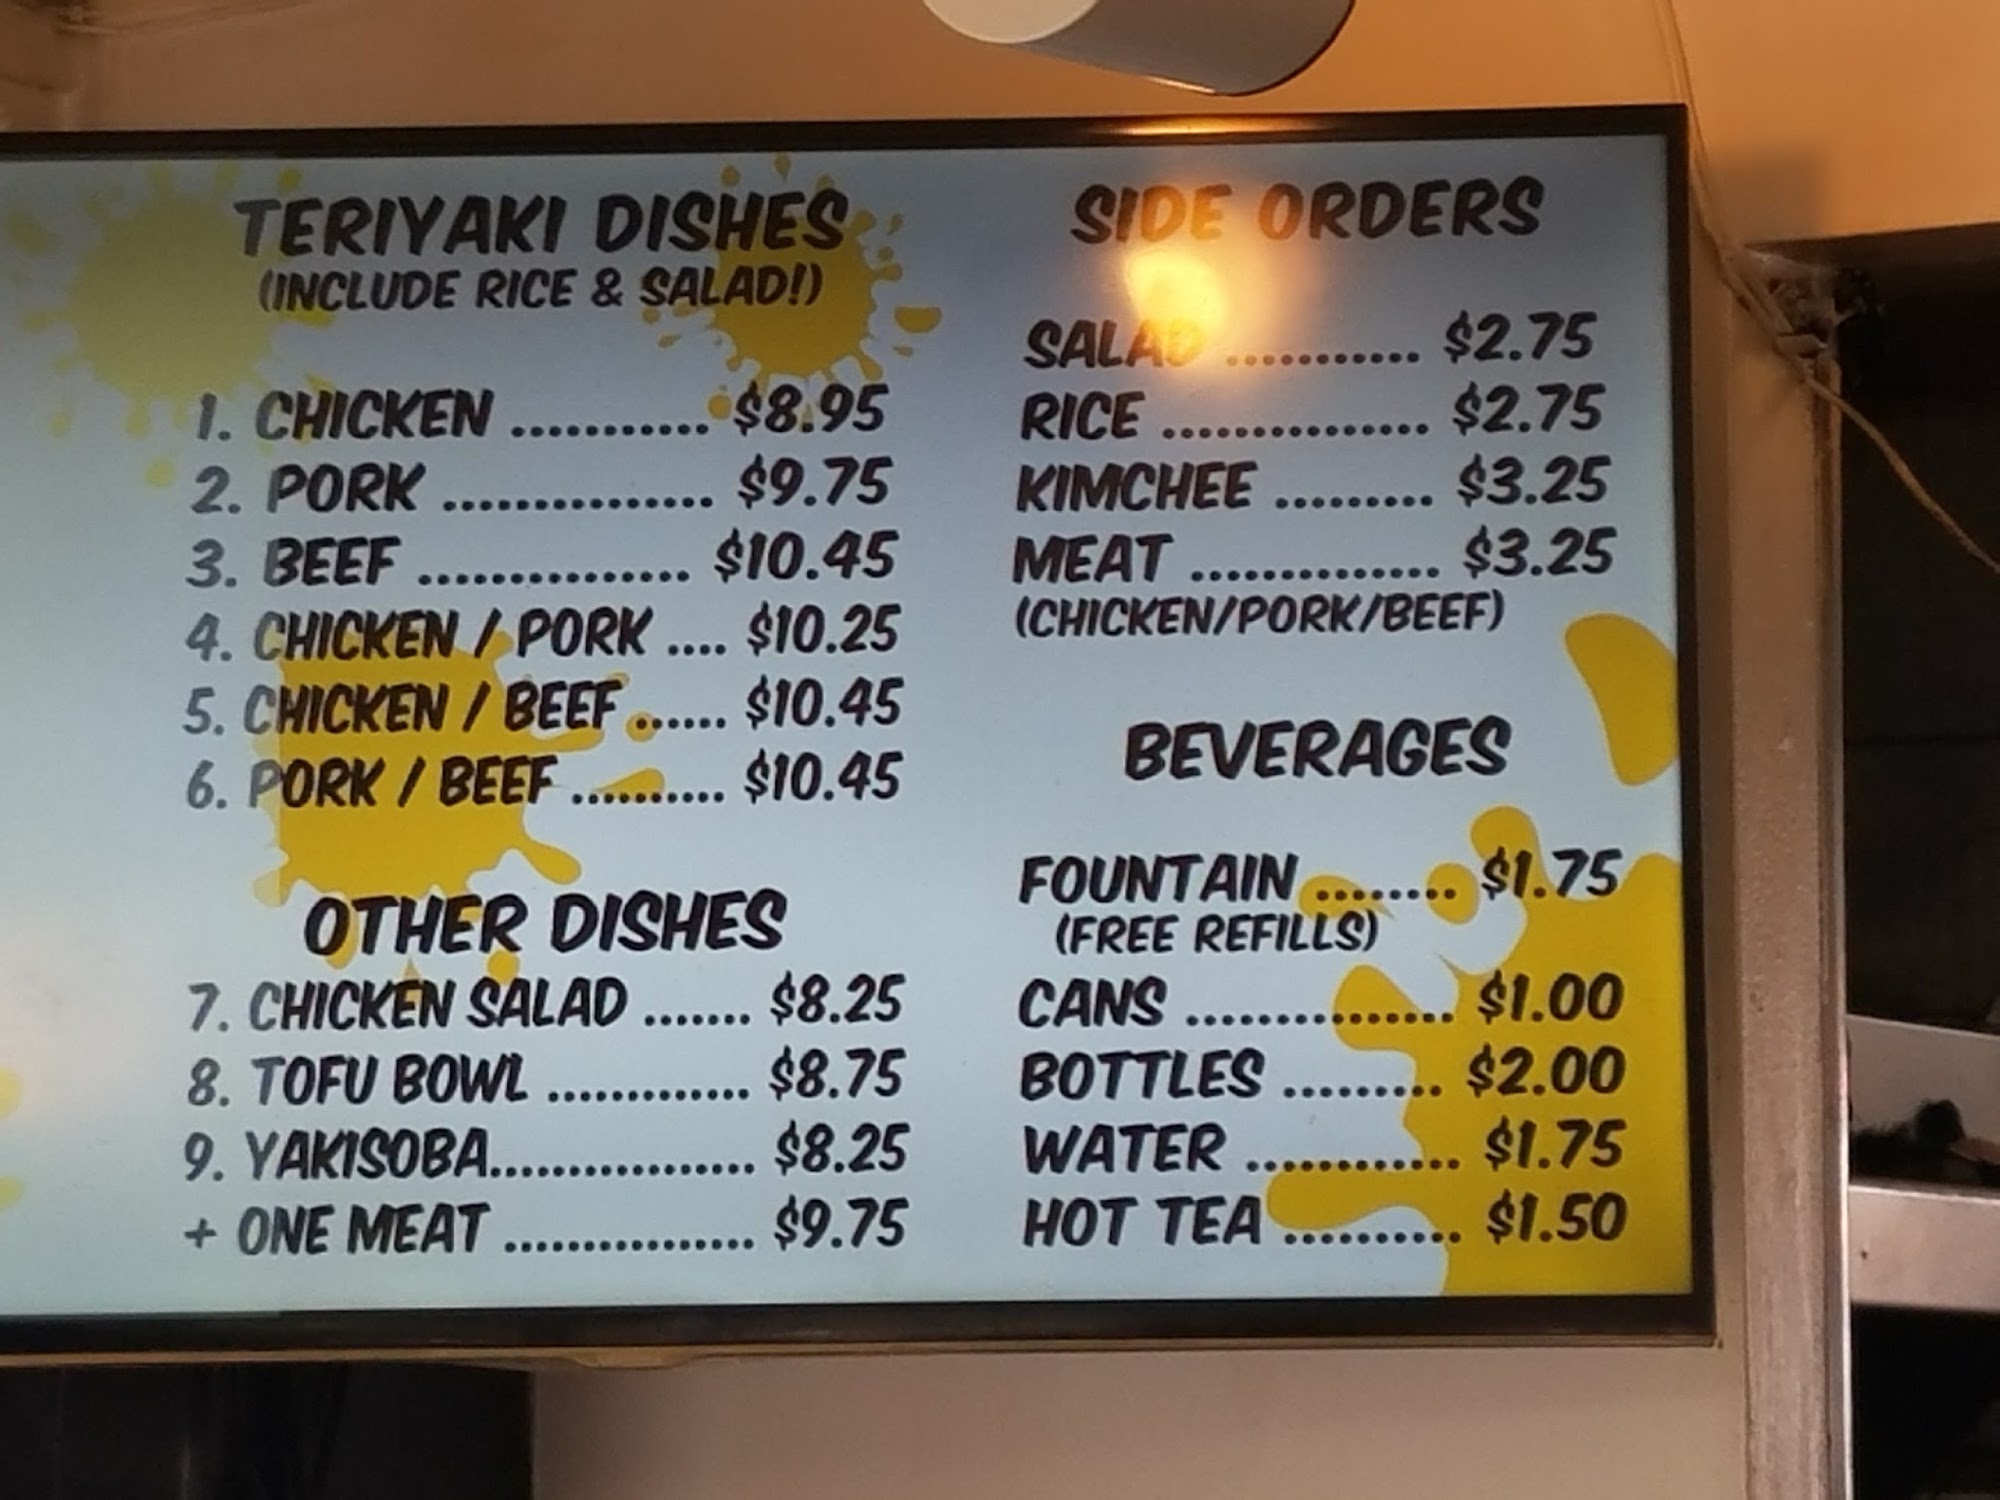 TERIYAKI DISHES
(INCLUDE RICE & SALAD!)
1. CHICKEN ........... $8.95
2. PORK ............... $9.75
3. BEEF ............... $10.45
4. CHICKEN / PORK .... $10.25
5. CHICKEN / BEEF ...... $10.45
6. PORK / BEEF .......... $10.45
OTHER DISHES
7. CHICKEN SALAD ....... $8.25
8. TOFU BOWL ............. $8.75
9. YAKISOBA................. $8.25
+ ONE MEAT ................ $9.75
SIDE ORDERS
SALAD ........... $2.75
RICE ............... $2.75
KIMCHEE ......... $3.25
MEAT .............. $3.25
(CHICKEN/PORK/BEEF)
BEVERAGES
FOUNTAIN ........ $1.75
(FREE REFILLS)
CANS ............... $1.00
BOTTLES ......... $2.00
WATER ............ $1.75
HOT TEA .......... $1.50